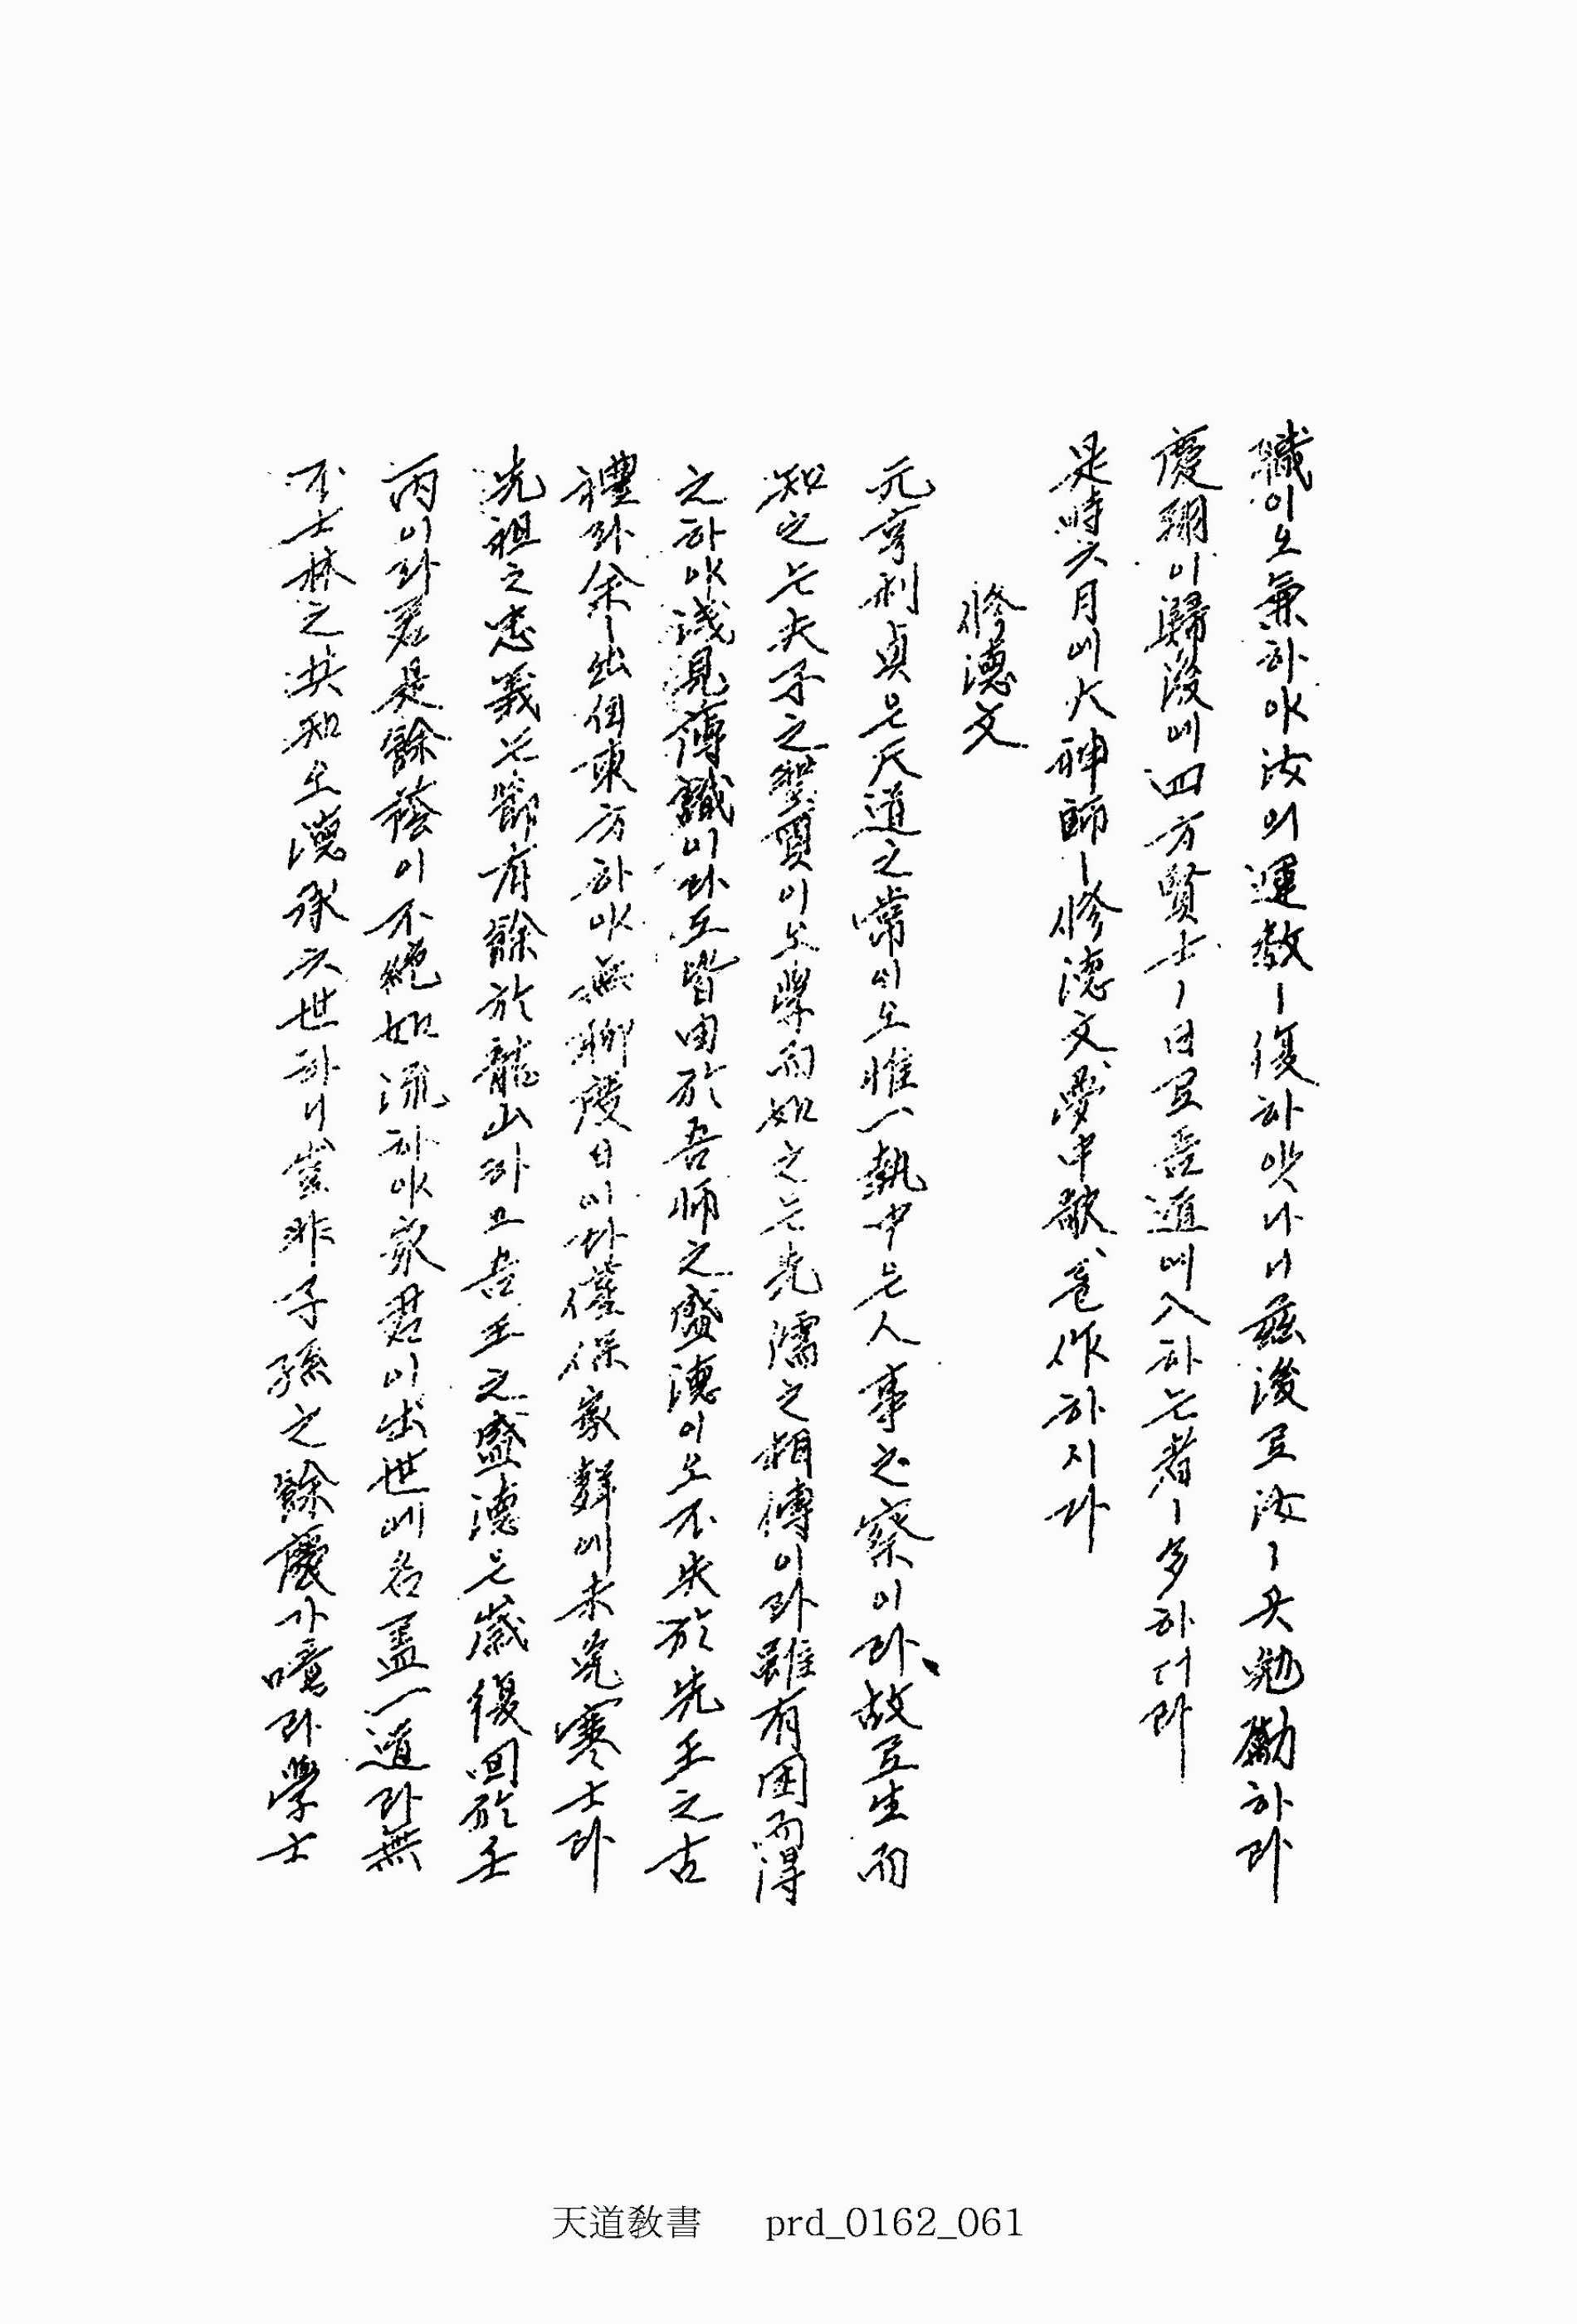 職이오兼하야汝의運敎ㅣ復하얏나니玆後로汝ㅣ必勉勵하라
慶翔이歸後에四方賢士ㅣ日로吾道에入하는者ㅣ多하더라
是時六月에大神師ㅣ修德文、夢中歌、를作하시다
修德文
元亨利貞은天道之常이오惟一執中은人事之察이라、故로生而
知之는夫子之聖質이오學而知之는先儒之相傳이라雖有困而得
之하야淺見薄識이라도皆由於吾師之盛德이오不失於先王之古
禮라余ㅣ出自東方하야無聊度日이라僅保家聲에未免寒士라
先祖之忠義는節有餘於龍山이라고吾王之盛德은歲復回於壬
丙이라若是餘蔭이不絶如流하야家君이出世에名盖一道라無
不士林之共知오德承六世하니豈非子孫之餘慶가噫라學士
天道敎書 prd_0162_061